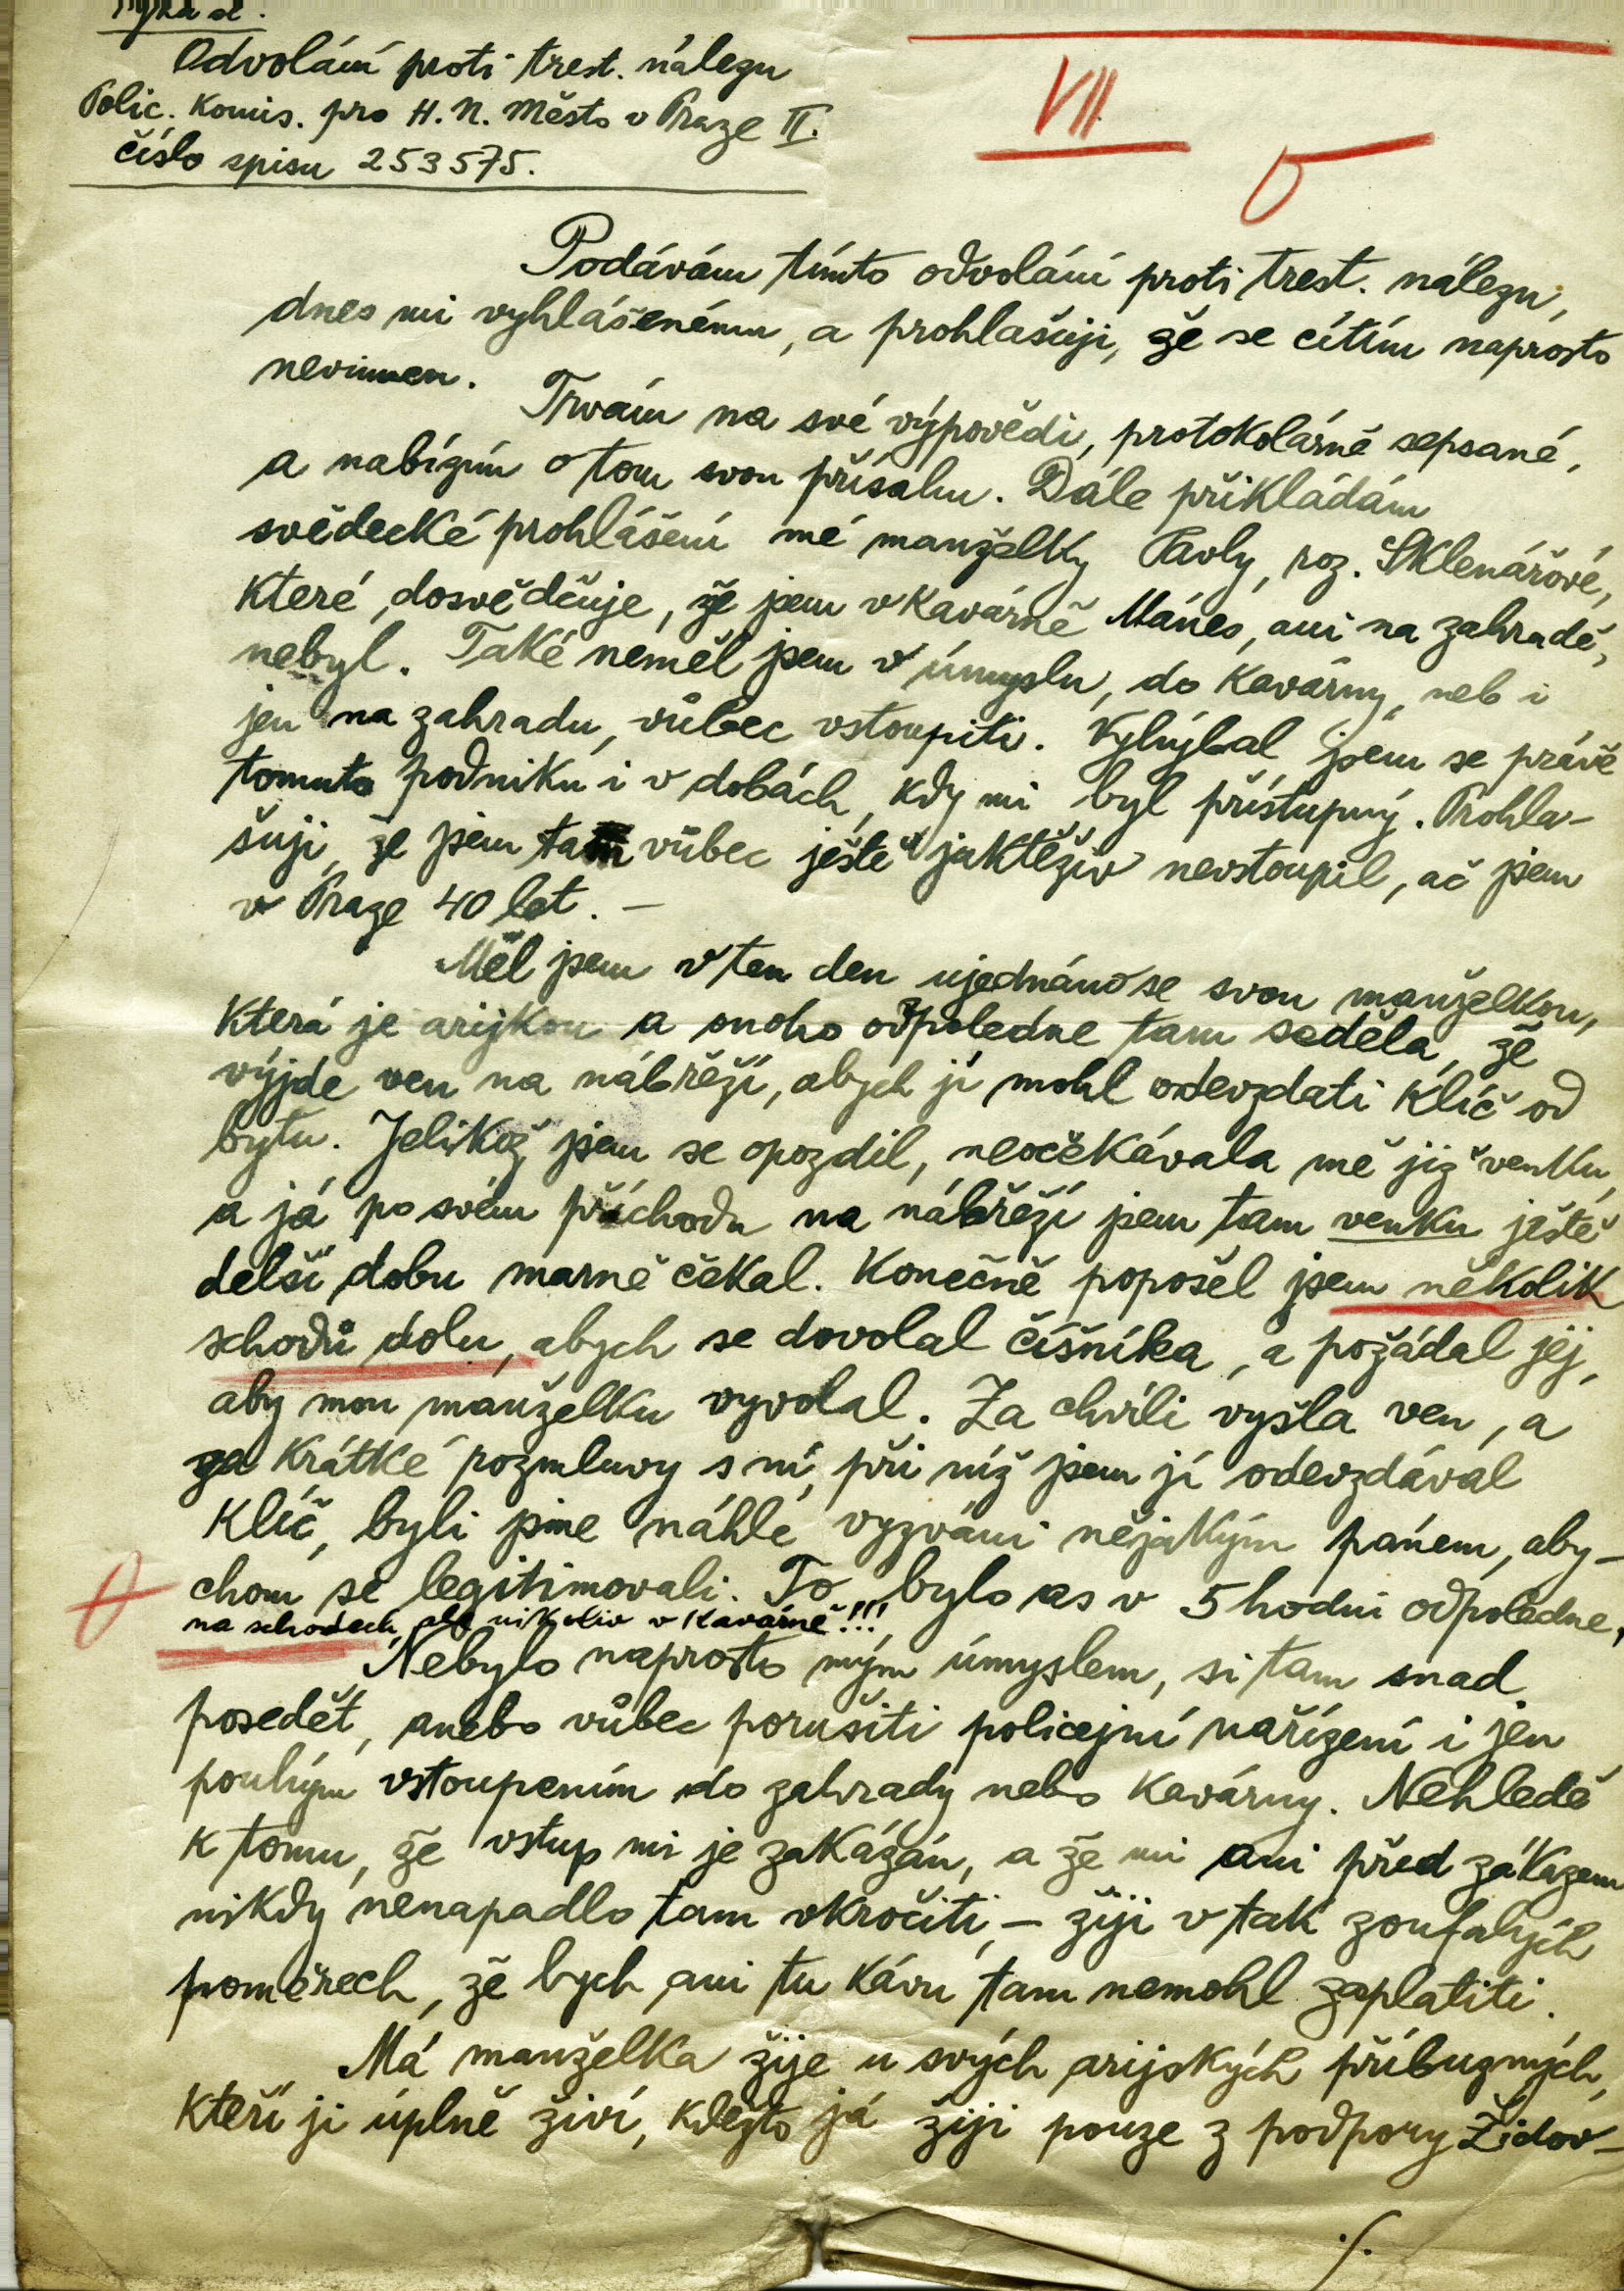 Týká se.
Odvolání proti trest. nálezu
Polic. Komis. pro H. N. Město v Praze II.
číslo spisu 253575.
VII
Podávám tímto odvolání proti trest. nálezu,
dnes mi vyhlášenému, a prohlašuji, že se cítím naprosto
nevinnen.
Trvám na své výpovědi, protokolárně sepsané,
a nabízím o tom svou přísahu. Dále přikládám
svědecké prohlášení mé manželky Pavly, roz. Sklenářové,
které dosvědčuje, že jsem v kavárně Mánes, ani na zahradě,
nebyl. Také neměl jsem v úmyslu, do kavárny, neb i
jen na zahradu, vůbec vstoupiti. Vyhýbal jsem se právě
tomuto podniku i v dobách, kdy mi byl přístupný. Prohla-
šuji, že jsem tam vůbec ještě jaktěživ nevstoupil, ač jsem
v Praze 40 let. –
Měl jsem v ten den ujednáno se svou manželkou,
která je arijkou a onoho odpoledne tam seděla, že
vyjde ven na nábřeží, abych jí mohl odevzdati klíč od
bytu. Jelikož jsem se opozdil, neočekávala mě již venku,
a já po svém příchodu na nábřeží jsem tam venku ještě
delší dobu marně čekal. Konečně popošel jsem několik
schodů dolu, abych se dovolal číšníka, a požádal jej,
aby mou manželku vyvolal. Za chvíli vyšla ven, a
za krátké rozmluvy s ní, při níž jsem jí odevzdával
klíč, byli jsme náhle vyzváni nějakým pánem, aby-
chom se legitimovali. To bylo as v 5 hodin odpoledne,
na schodech, ale nikoliv v kavárně!!!
Nebylo naprosto mým úmyslem, si tam snad
posedět, anebo vůbec porušiti policejní nařízení i jen
pouhým vstoupením do zahrady nebo kavárny. Nehledě
k tomu, že vstup mi je zakázán, a že mi ani před zákazem
nikdy nenapadlo tam vkročiti, – žiji v tak zoufalých
poměrech, že bych ani tu kávu tam nemohl zaplatiti.
Má manželka žije u svých arijských příbuzných,
kteří ji úplně živí, kdežto já žiji pouze z podpory Židov-
./.